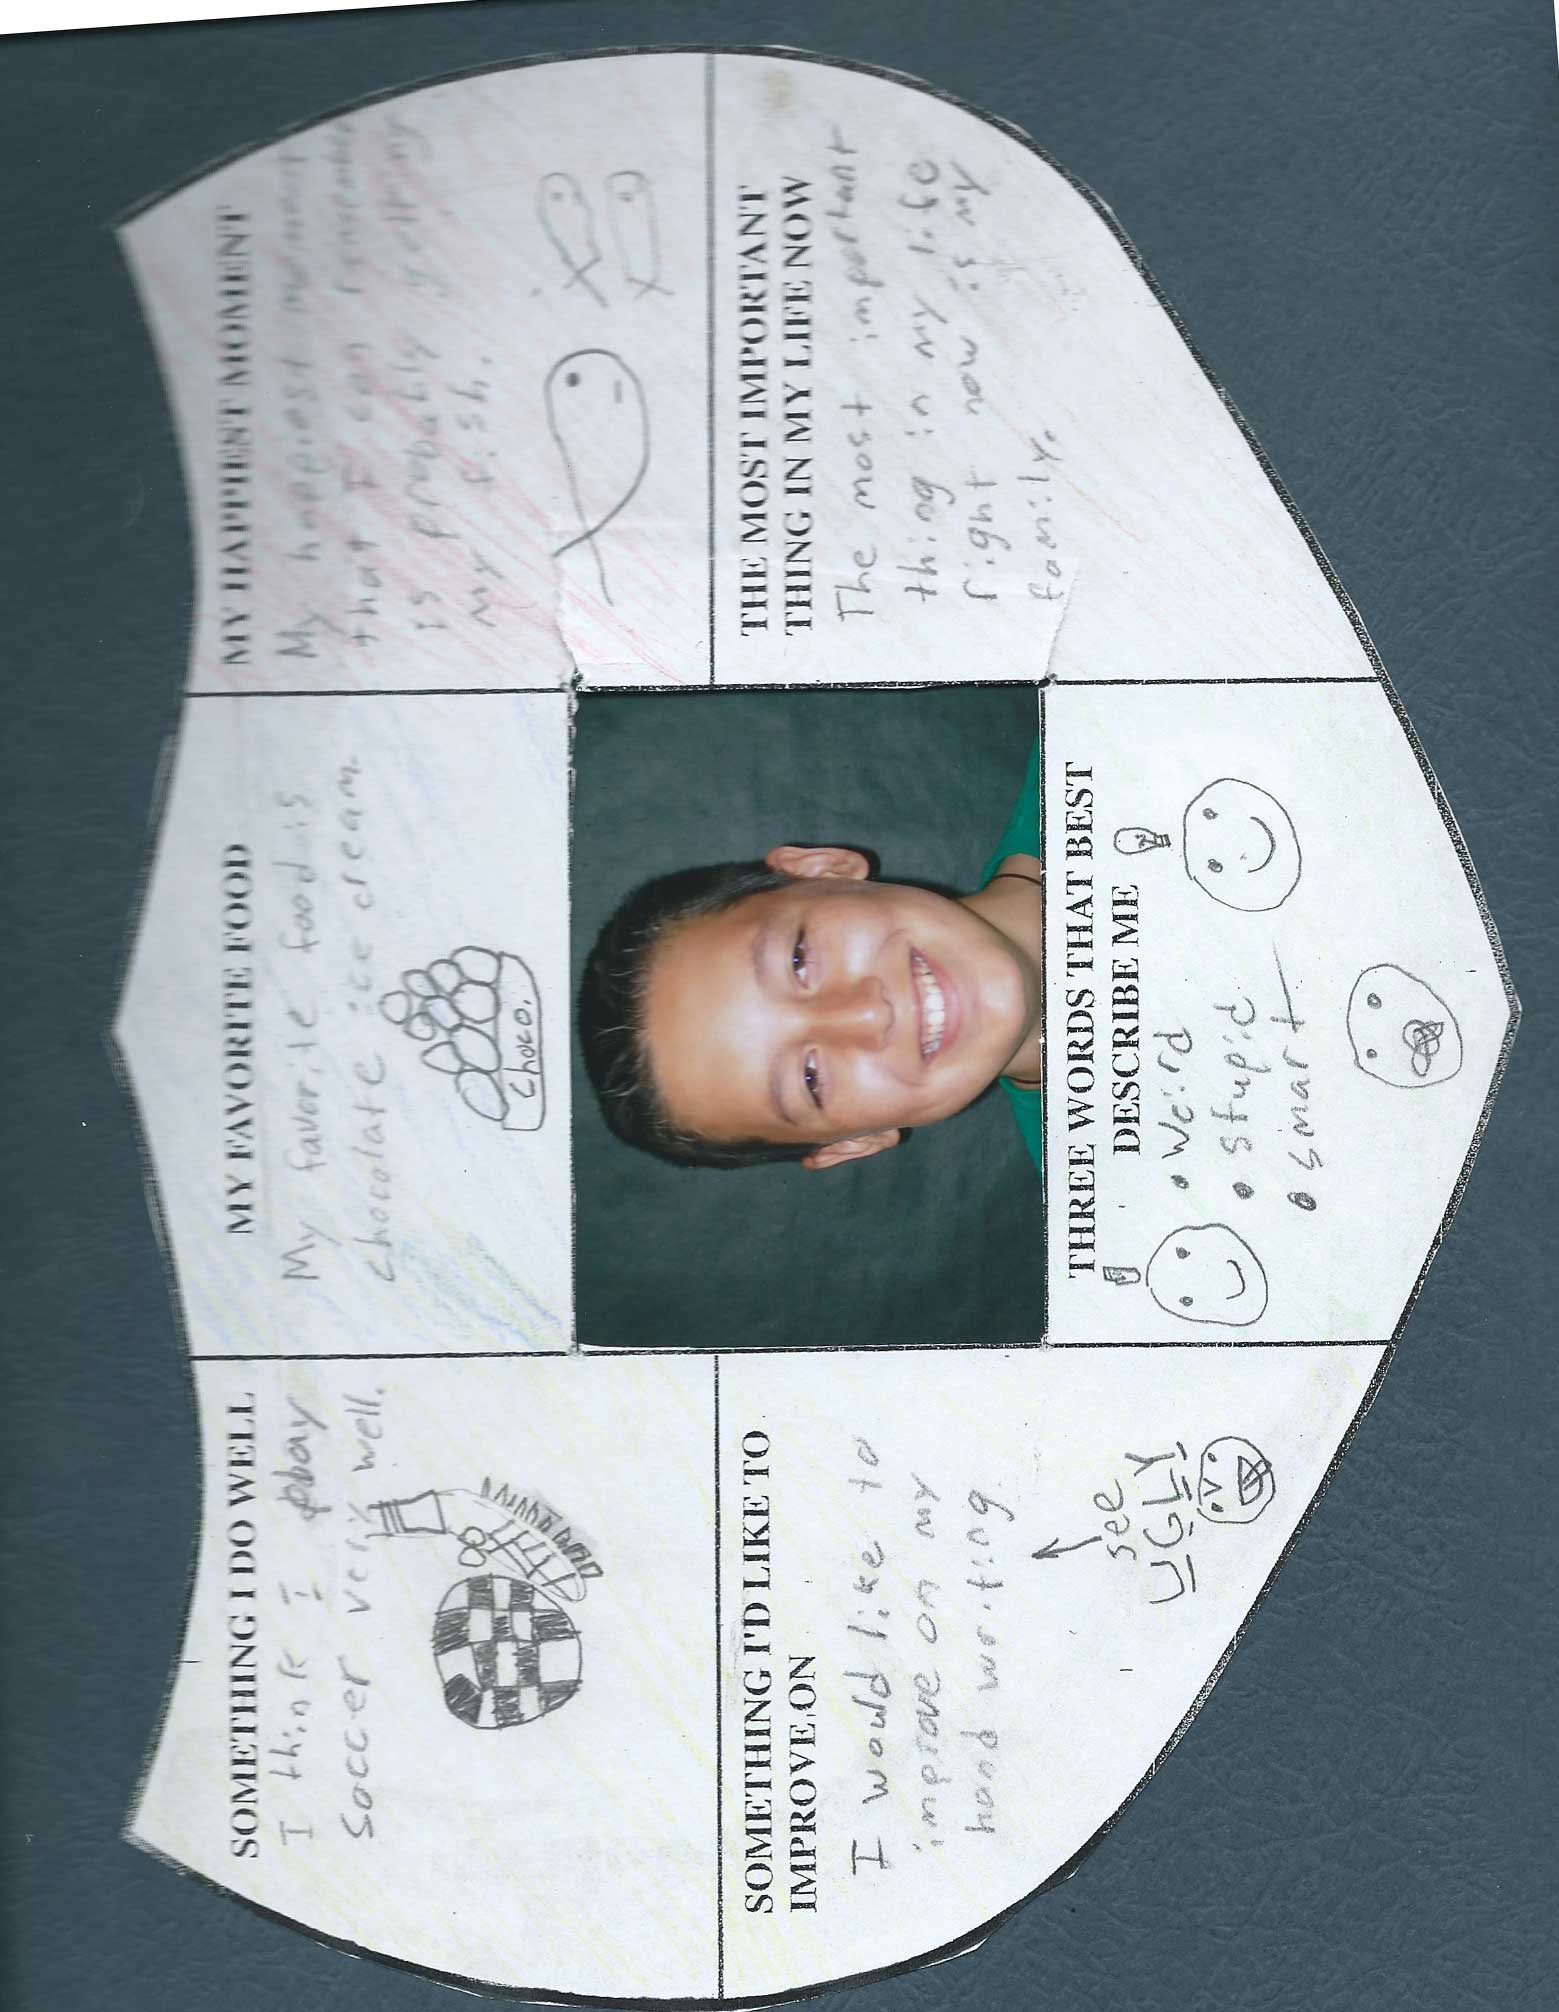 SOMETHING I DO WELL
I think I play
soccer very well.
MY FAVORITE FOOD
My favorite food is
chocolate ice cream.
choco.
MY HAPPIEST MOMENT
My happiest moment
that I can remember
is probably getting
my fish.
SOMETHING I'D LIKE TO
IMPROVE ON
I would like to
improve on my
hand writing
see
UGLY
THREE WORDS THAT BEST
DESCRIBE ME
• weird
• stupid
• smart
THE MOST IMPORTANT
THING IN MY LIFE NOW
The most important
thing in my life
right now is my
family.